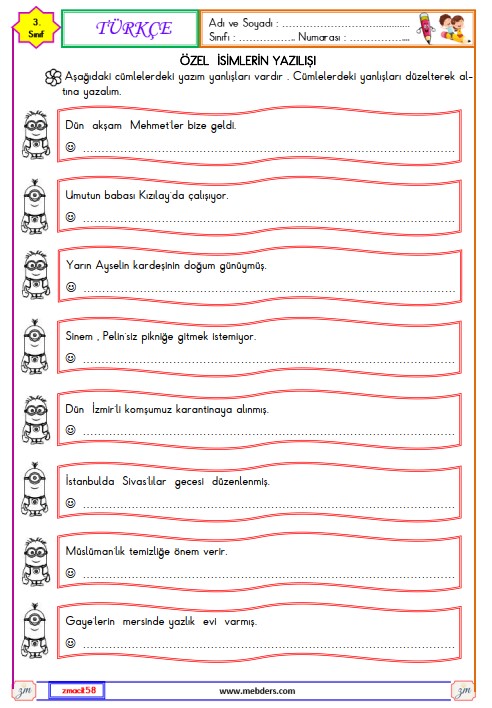 3.
Sınıf
TÜRKÇE
Adı ve Soyadı : ……………………………………………
Sınıfı : …………….. Numarası : ……………....
ÖZEL İSİMLERİN YAZILIŞI
Aşağıdaki cümlelerdeki yazım yanlışları vardır . Cümlelerdeki yanlışları düzelterek al-
tına yazalım.
Dün akşam Mehmet'ler bize geldi.
Umutun babası Kızılay'da çalışıyor.
Yarın Ayselin kardeşinin doğum günüymüş.
Sinem , Pelin'siz pikniğe gitmek istemiyor.
Dün İzmir'li komşumuz karantinaya alınmış.
İstanbulda Sivas'lılar gecesi düzenlenmiş.
Müslüman'lık temizliğe önem verir.
Gaye'lerin mersinde yazlık evi varmış.
zm
zmacit58
www.mebders.com
zm